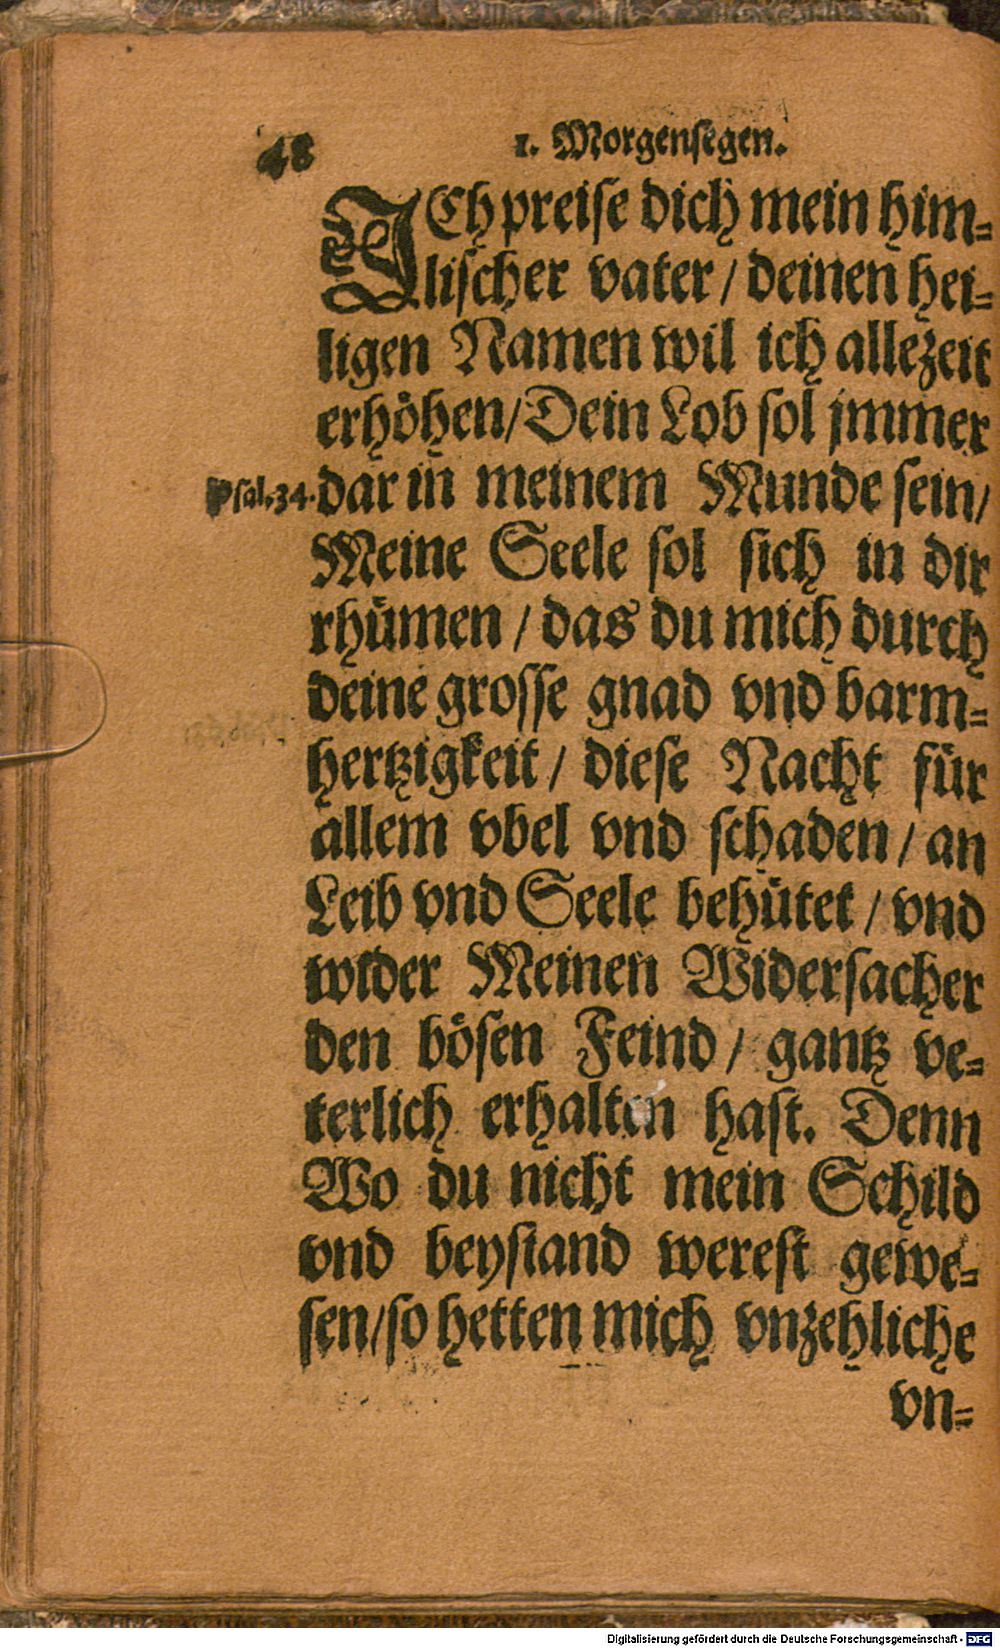 48
1. Morgensegen.
ICh preise dich mein him-
lischer vater / deinen hei-
ligen Namen wil ich allezeit
erhöhen / Dein Lob sol jmmer
Psal. 34.
dar in meinem Munde sein /
Meine Seele sol sich in dir
rhümen / das du mich durch
deine grosse gnad vnd barm-
hertzigkeit / diese Nacht für
allem vbel vnd schaden / an
Leib vnd Seele behütet / vnd
wider Meinen Widersacher
den bösen Feind / gantz ve-
terlich erhalten hast. Denn
Wo du nicht mein Schild
vnd beystand werest gewe-
sen / so hetten mich vnzehliche
vn-
Digitalisierung gefördert durch die Deutsche Forschungsgemeinschaft - DFG